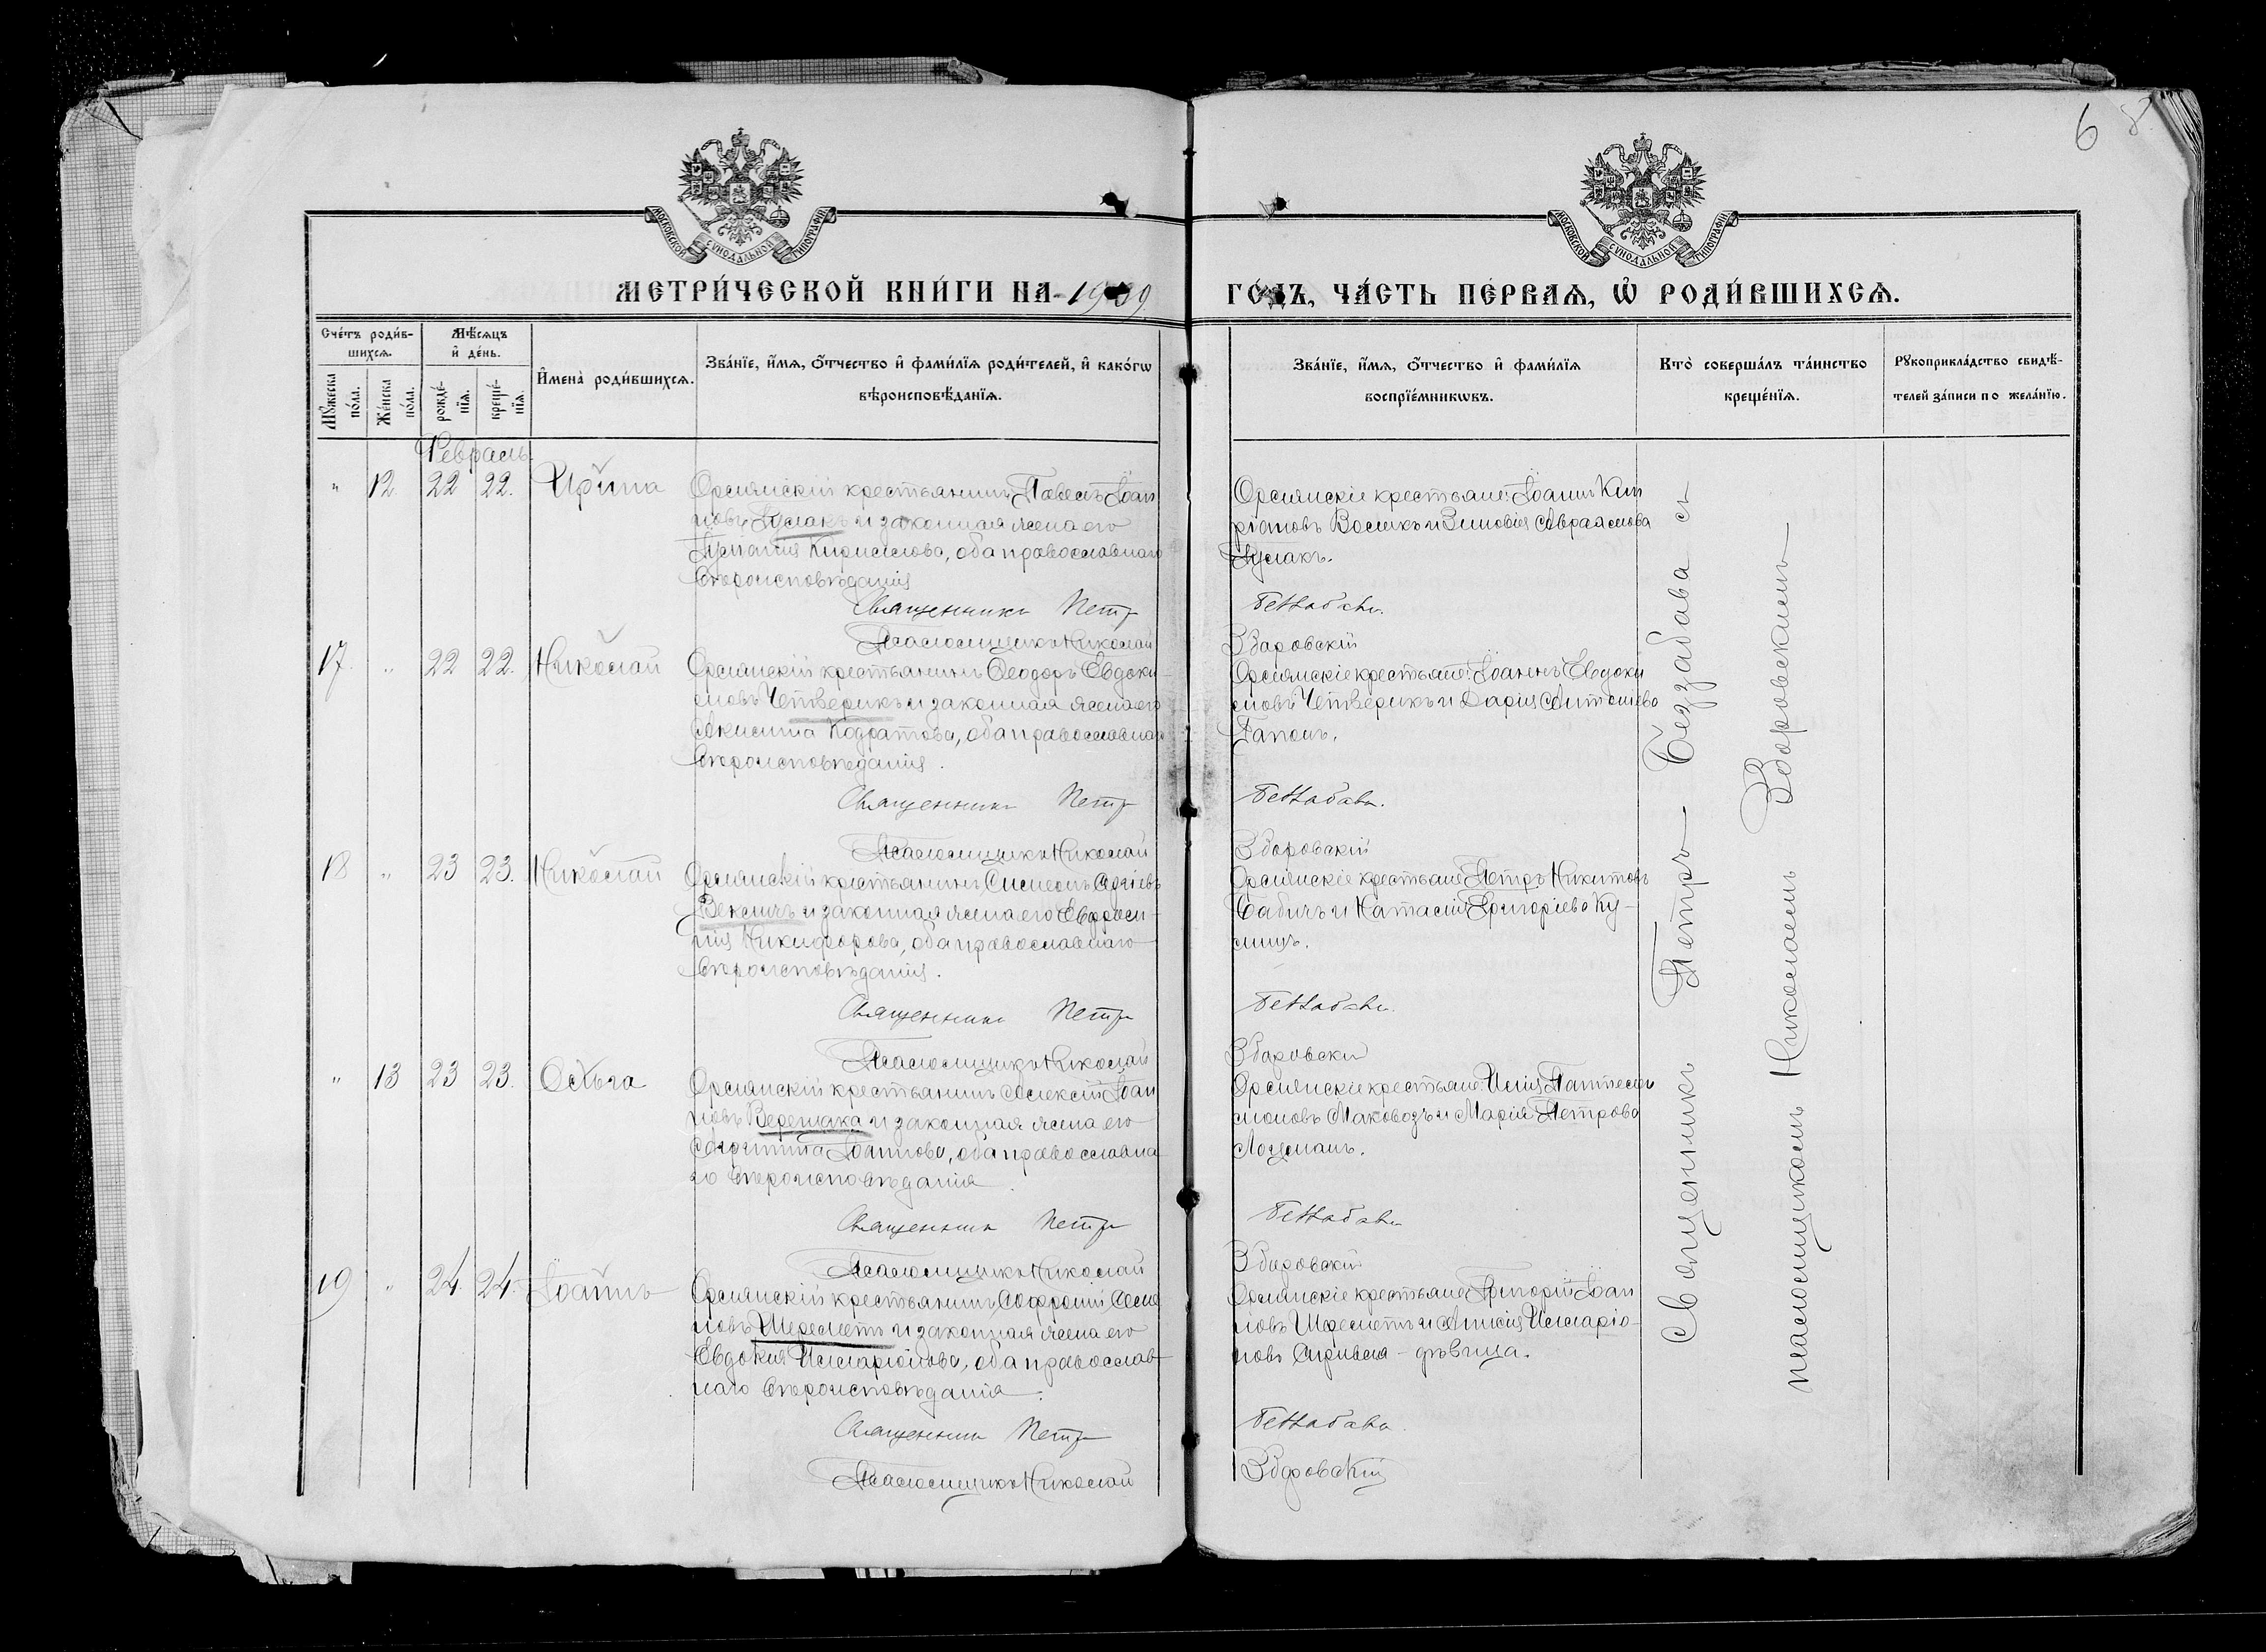 6 8
МОСКОВСКОЙ СѴНОДАЛЬНОЙ ТИПОГРАФІИ
МОСКОВСКОЙ СѴНОДАЛЬНОЙ ТИПОГРАФІИ
МЕТРИ́ЧЕСКОЙ КНИ́ГИ НА 1909
ГО́ДЪ, ЧА́СТЬ ПЕ́РВАѦ, Ѡ҆ РОДИ́ВШИХСѦ.
Сче́тъ роди́в-
шихсѧ.
Мѣ́сѧцъ
и҆ де́нь.
Мꙋ́жеска
по́ла.
Же́нска
по́ла.
рожде́-
нїѧ.
креще́-
нїѧ.
И҆мена̀ роди́вшихсѧ.
Зва́нїе, и҆́мѧ, ѻ҆́тчество и҆ фами́лїѧ роди́телей, и҆ како́гѡ
вѣроисповѣ́данїѧ.
Зва́нїе, и҆́мѧ, ѻ҆́тчество и҆ фами́лїѧ
воспрїе́мникѡвъ.
Кто̀ соверша́лъ та́инство
креще́нїѧ.
Рꙋкоприкла́дство свидѣ́-
телей за́писи по жела́нїю.
Февраль
" 12 22 22. Ирина
Орлянскій крестьянинъ Павелъ Іоан
новъ и законная жена его
Кириллова, оба православнаго
вѣроисповѣданія
Священникъ Петръ
Псаломщикъ Николай
Орлянскіе крестьяне: Іоаннъ Кип
ріановъ и Зиновія Авраамова
Беззабава
Зборовскій
17. " 22 22. Николай
Орлянскій крестьянинъ Ѳеодоръ Евдоки
мовъ Четверикъ и законная жена его
Акилина Кодратова, оба православнаго
вѣроисповѣданія.
Священникъ Петръ
Псаломщикъ Николай
Орлянскіе крестьяне: Іоаннъ Евдоки
мовъ Четверикъ и Дарія Антоніева
Гапонъ.
Беззабава.
Зборовскій
18 " 23 23. Николай
Орлянскій крестьянинъ Симеонъ
и законная жена его Евфроси-
нія Никифорова, оба православнаго
вѣроисповѣданія.
Священникъ Петръ
Псаломщикъ Николай
Орлянскіе крестьяне Петръ Никитовъ
Бабичъ и Наталія Григоріева
Беззабава.
Зборовскій
" 13 23 23. Ольга
Орлянскій крестьянинъ Алексій Іоан
новъ Верещака и законная жена его
Іоаннова, оба православна
го вѣроисповѣданія
Священникъ Петръ
Псаломщикъ Николай
Орлянскіе крестьяне: Илія Пантелеи
моновъ Маковозъ и Марія Петрова
Лоцманъ.
Беззабава
Зборовскій
19 " 24 24. Іоаннъ
Орлянскій крестьянинъ Софроній
новъ Шереметъ и законная жена его
Евдокія Илларіонова, оба православ
наго вѣроисповѣданія.
Священникъ Петръ
Псаломщикъ Николай
Орлянскіе крестьяне Григорій Іоан
новъ Шереметъ и Анисія Илларіо-
нова дѣвица.
Беззабава
Зборовскій
Священникъ Петръ Беззабава съ
псаломщикомъ Николаемъ Зборовскимъ